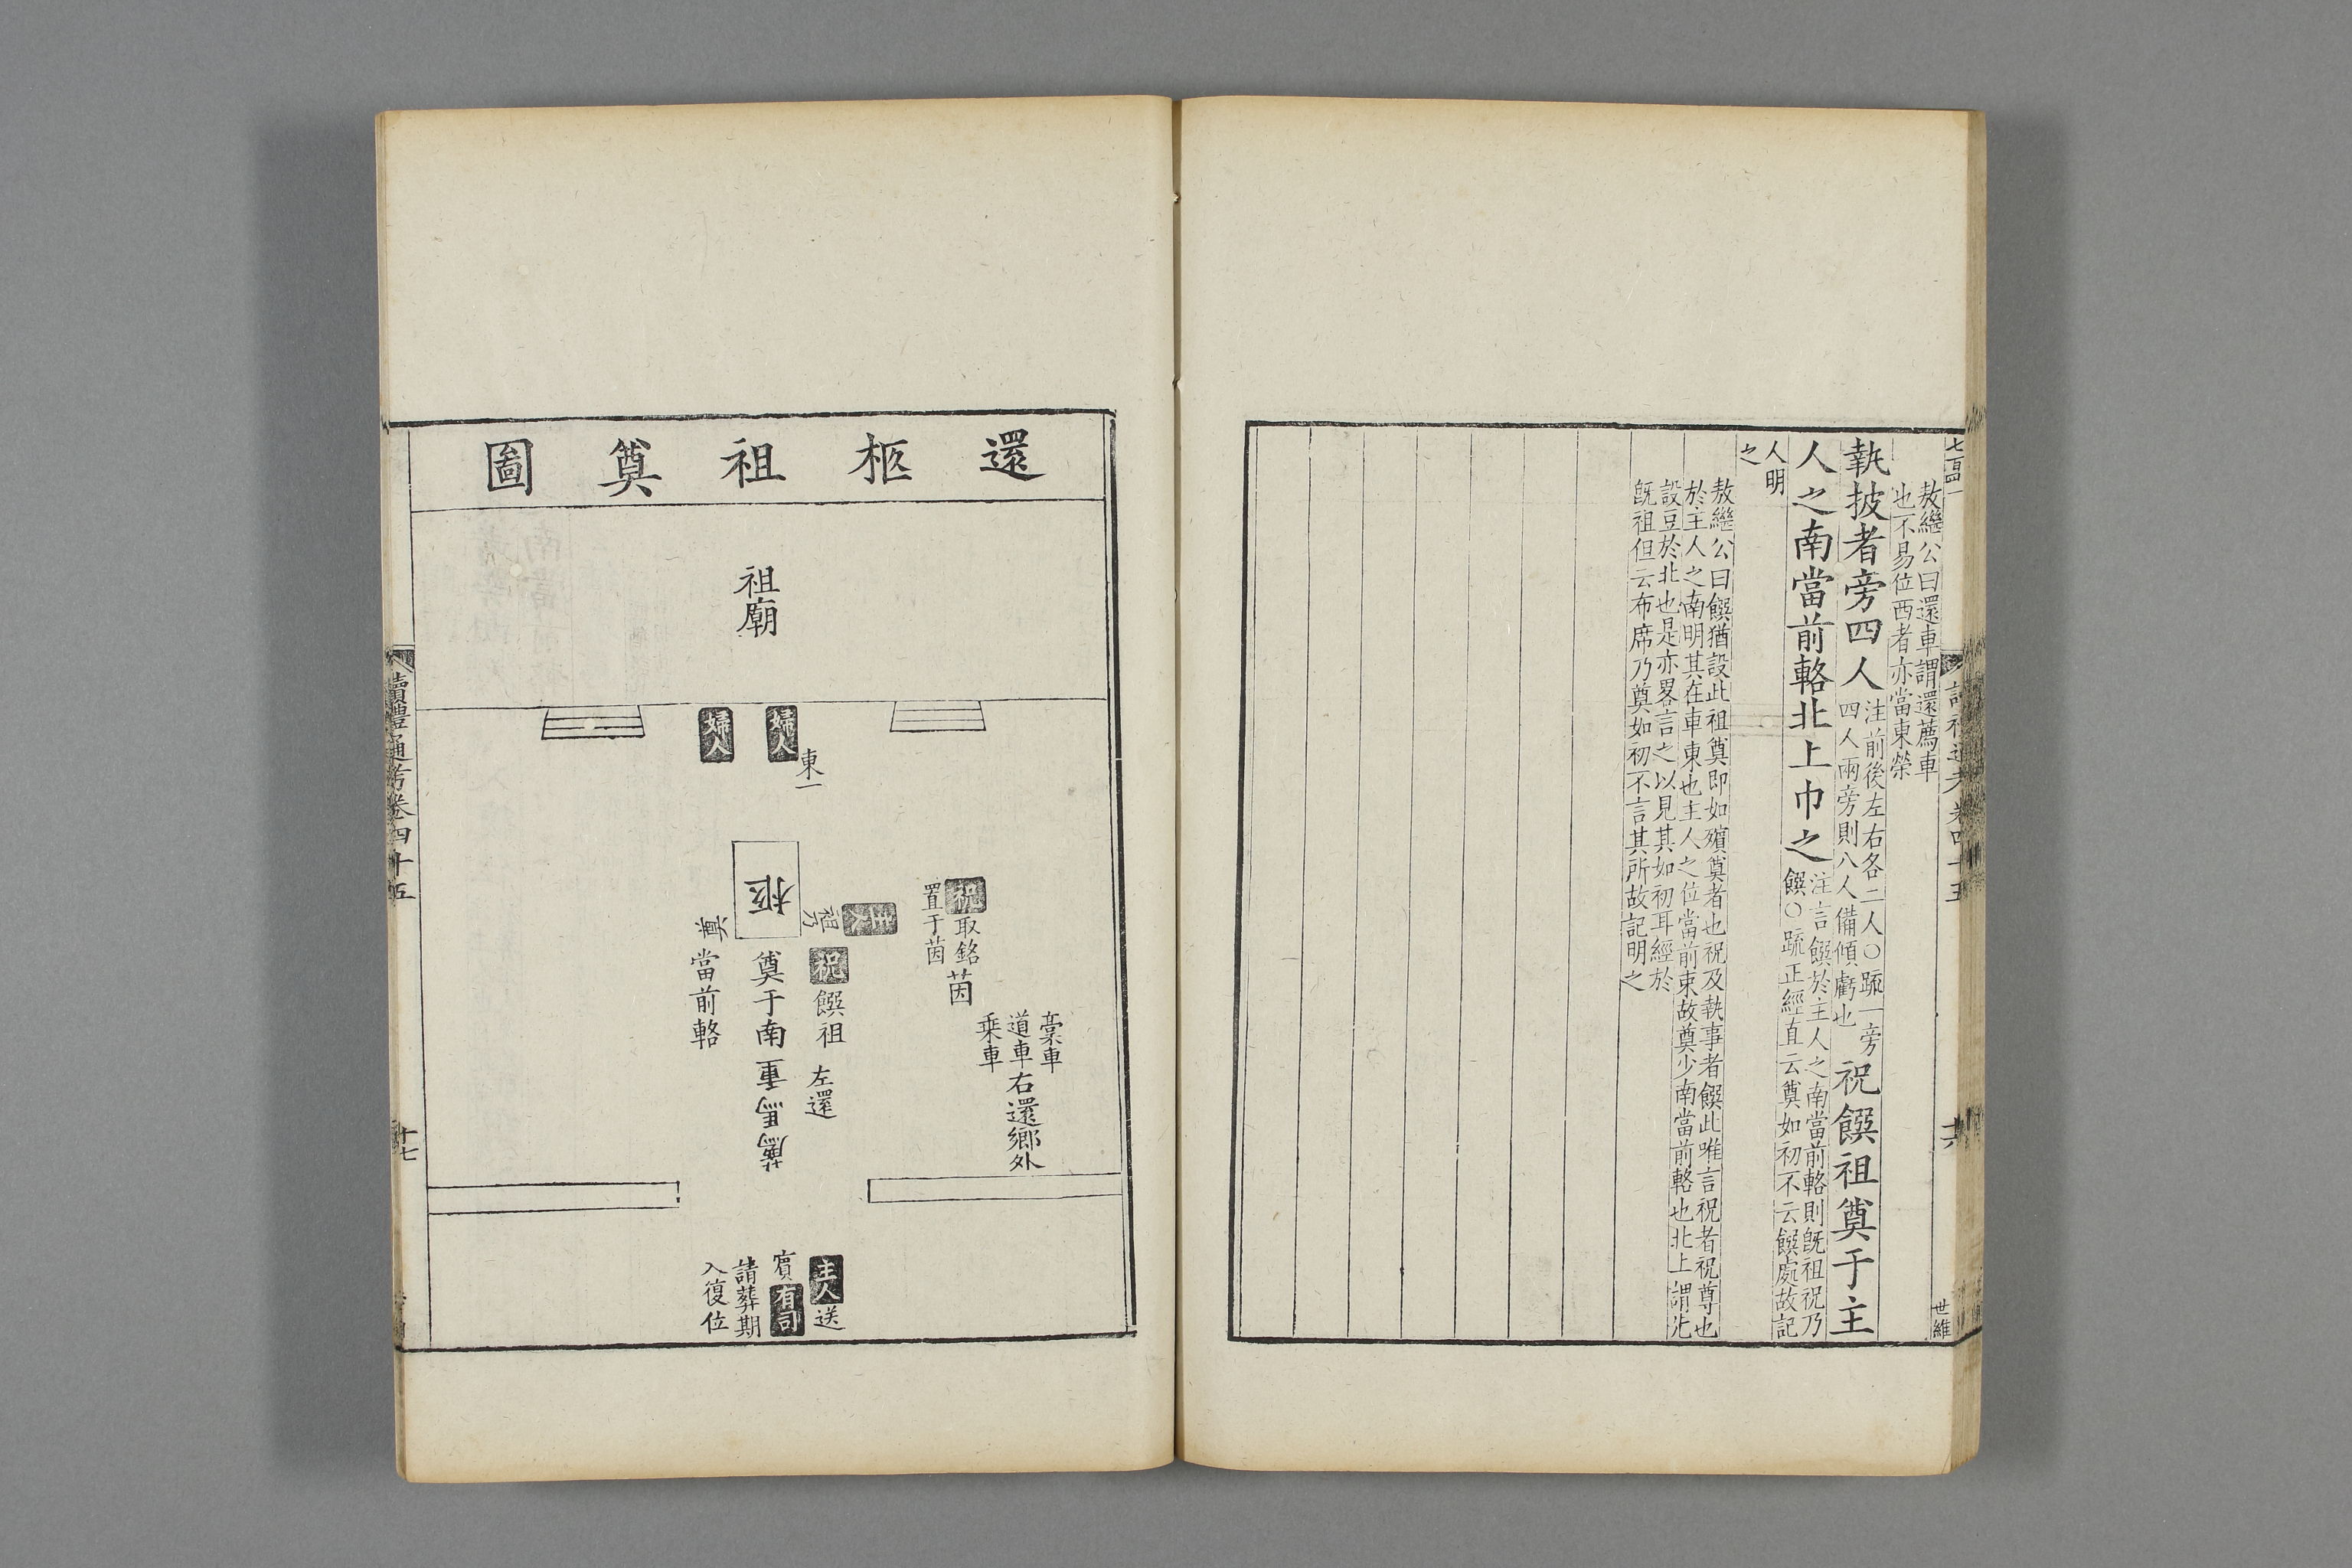 敖繼公曰還車謂還薦車
也不易位西者亦當東榮
執披者旁四人注前後左右各二人○疏一旁
四人兩旁則八人備傾虧也祝饌祖奠于主
人之南當前輅北上巾之注言饌於主人之南當前輅則旣祖祝乃
饌○疏正經直云奠如初不云饌處故記
人明
之
敖繼公曰饌猶設此祖奠即如殯奠者也祝及執事者饌此唯言祝者祝尊也
於主人之南明其在車東也主人之位當前束故奠少南當前輅也北上謂先
設豆於北也是亦畧言之以見其如初耳經於
旣祖但云布席乃奠如初不言其所故記明之
世維
還柩祖奠圖
祖廟
婦人
婦人
東一
柩
主人
祖乃
奠
祝取銘
置于茵
茵
祝饌祖
奠于南
當前輅
左還
重
馬
薦
藁車
道車右還鄉外
乘車
主人送
賓有司
請葬期
入復位
讀禮通考卷四十五
十七